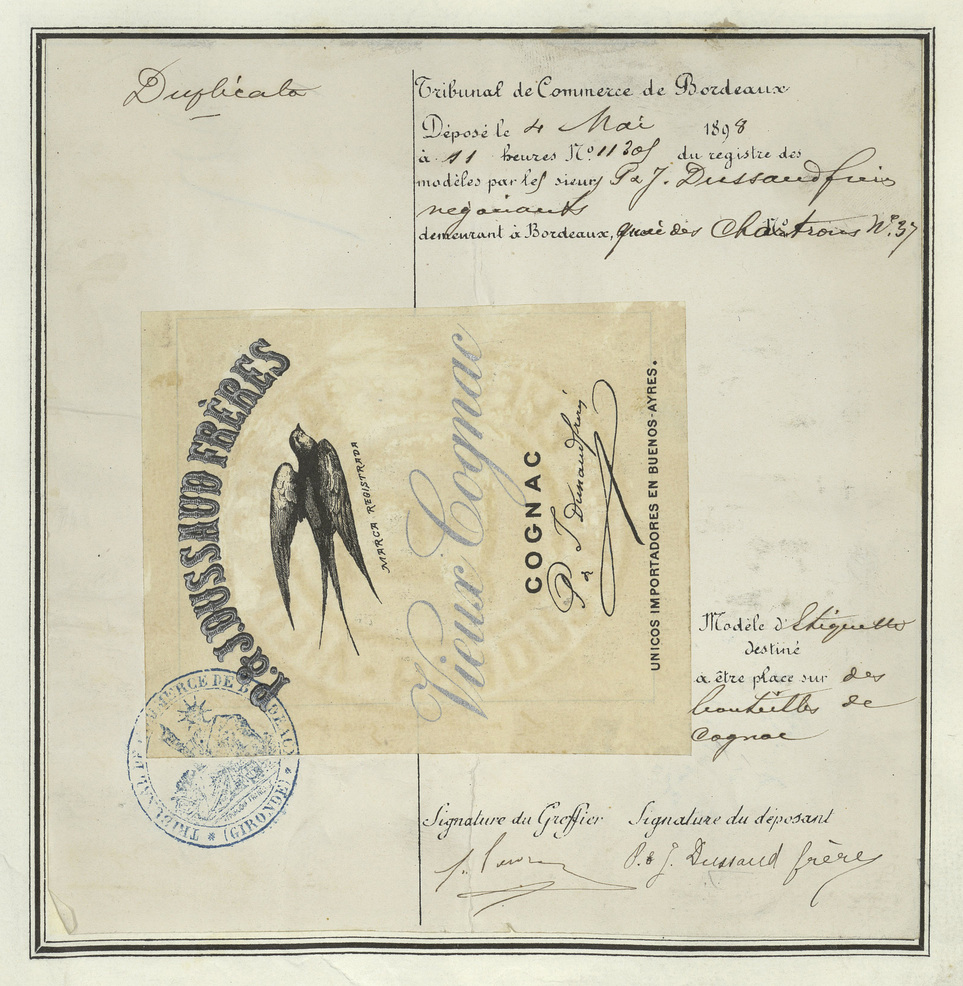 Duplicata
Tribunal de Commerce de Bordeaux
Déposé le 4 Mai 1898
à 11 heures Nº 11305 du registre des
modèles par les sieurs P & J. Dussaud frères
negociants
demeurant à Bordeaux, quai des Chartrons Nº. 37
P. & J. DUSSAUD FRÈRES
MARCA REGISTRADA
Vieux Cognac
COGNAC
P & J Dussaud frères
UNICOS IMPORTADORES EN BUENOS-AYRES.
Modèle d'Etiquette
destiné
à être place sur des
bouteilles de
Cognac
TRIBUNAL DE COMMERCE DE BORDEAUX
* (GIRONDE) *
Signature du Greffier Signature du déposant
P. & J. Dussaud frères